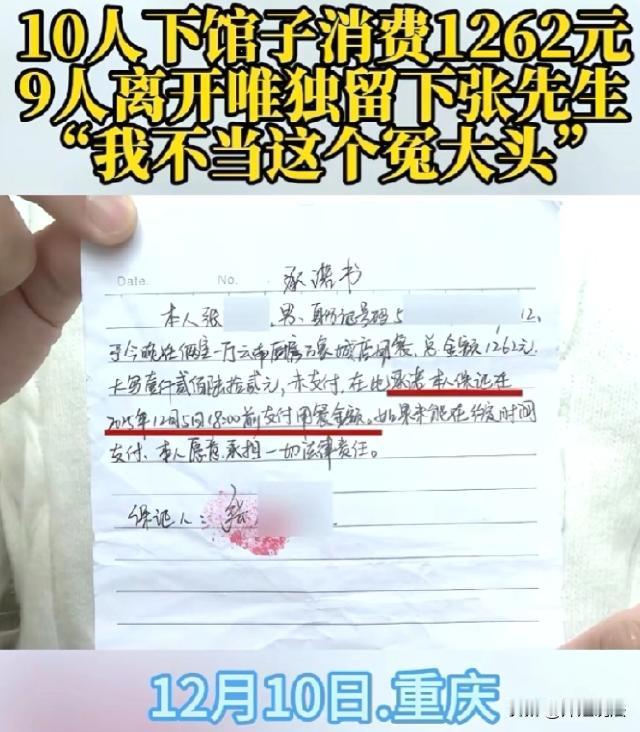 10人下馆子消费1262元
9人离开唯独留下张先生
“我不当这个冤大头”
Date.
No.
承诺书
本人张 ,男,身份证号码5 12,
于今晚在 一厅云南 万象城店用餐,总金额1262元,
大写壹仟贰佰陆拾贰元,未支付,在此承诺本人保证在
2025年12月5日18:00前支付用餐金额,如果未能在约定时间
支付,本人愿意承担一切法律责任。
保证人:张
12月10日.重庆